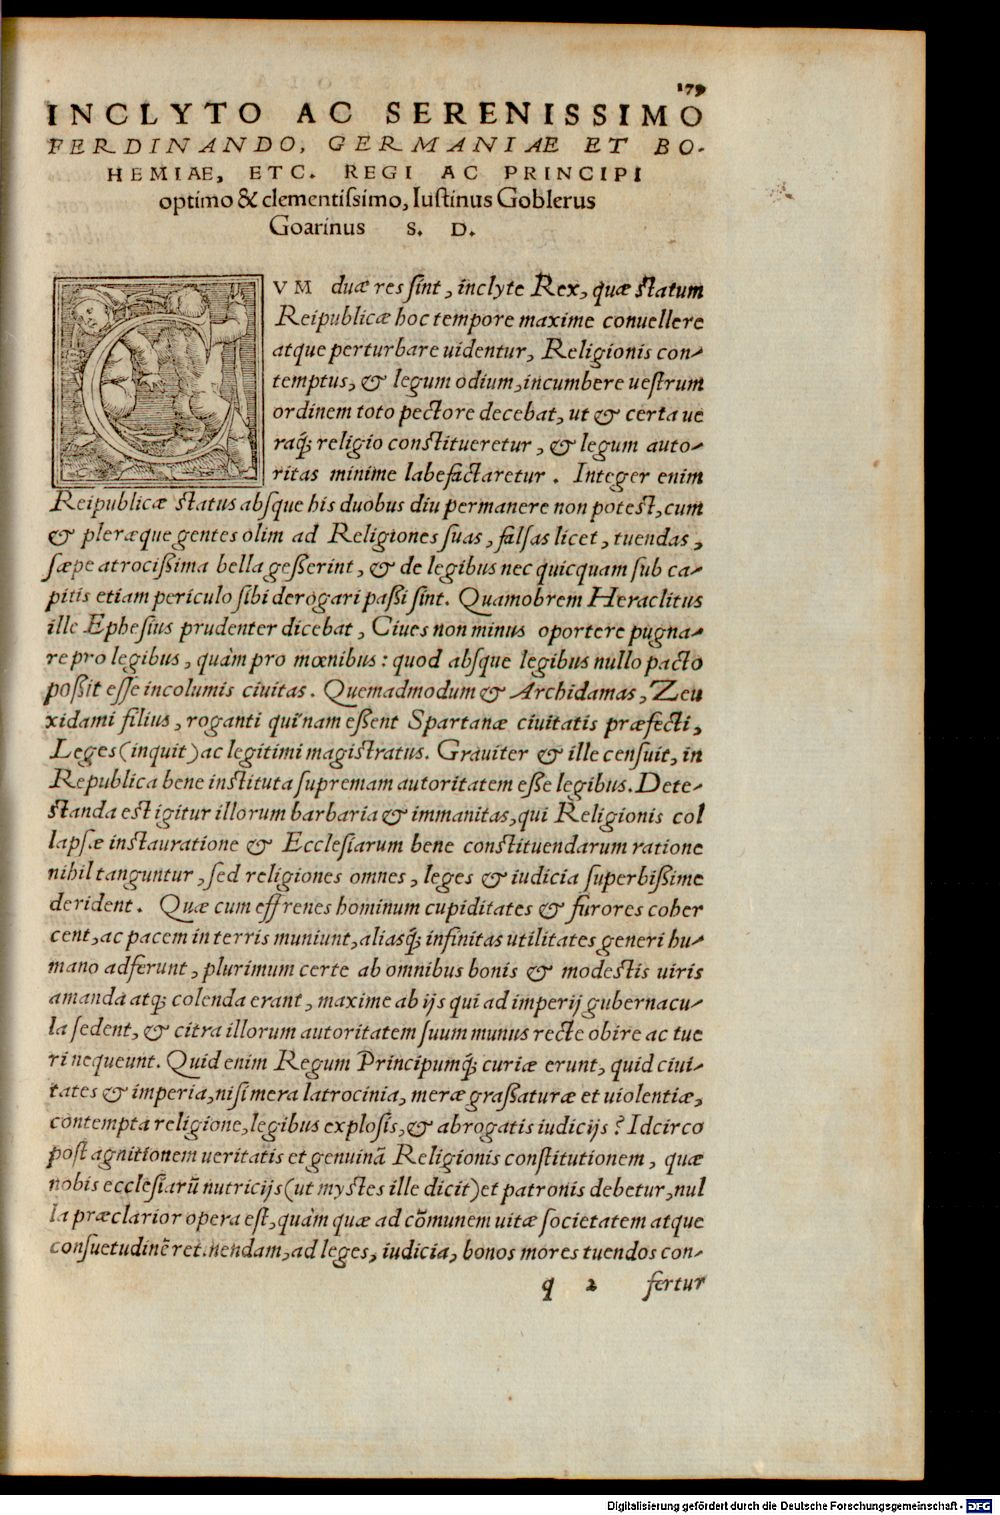 179
INCLYTO AC SERENISSIMO
FERDINANDO, GERMANIAE ET BO-
HEMIAE, ETC. REGI AC PRINCIPI
optimo & clementiſsimo, Iuſtinus Goblerus
Goarinus S. D.
CVM duæ res ſint, inclyte Rex, quæ ſtatum
Reipublicæ hoc tempore maxime conuellere
atque perturbare uidentur, Religionis con-
temptus, & legum odium, incumbere ueſtrum
ordinem toto pectore decebat, ut & certa ue
raq́; religio conſtitueretur, & legum auto-
ritas minime labefactaretur. Integer enim
Reipublicæ ſtatus abſque his duobus diu permanere non poteſt, cum
& pleræque gentes olim ad Religiones ſuas, falſas licet, tuendas,
ſæpe atrociſsima bella geſſerint, & de legibus nec quicquam ſub ca-
pitis etiam periculo ſibi derogari paſsi ſint. Quamobrem Heraclitus
ille Epheſius prudenter dicebat, Ciues non minus oportere pugna-
re pro legibus, quàm pro mœnibus: quod abſque legibus nullo pacto
poſsit eſſe incolumis ciuitas. Quemadmodum & Archidamas, Zeu
xidami filius, roganti qui'nam eſſent Spartanæ ciuitatis præfecti,
Leges (inquit) ac legitimi magiſtratus. Grauiter & ille cenſuit, in
Republica bene inſtituta ſupremam autoritatem eſſe legibus. Dete-
ſtanda eſt igitur illorum barbaria & immanitas, qui Religionis col
lapſæ inſtauratione & Eccleſiarum bene conſtituendarum ratione
nihil tanguntur, ſed religiones omnes, leges & iudicia ſuperbiſsime
derident. Quæ cum effrenes hominum cupiditates & furores coher
cent, ac pacem in terris muniunt, aliasq́; infinitas utilitates generi hu-
mano adferunt, plurimum certe ab omnibus bonis & modeſtis uiris
amanda atq; colenda erant, maxime ab ijs qui ad imperij gubernacu-
la ſedent, & citra illorum autoritatem ſuum munus recte obire ac tue
ri nequeunt. Quid enim Regum Principumq́; curiæ erunt, quid ciui-
tates & imperia, niſi mera latrocinia, meræ graſſaturæ et uiolentiæ,
contempta religione, legibus exploſis, & abrogatis iudicijs? Idcirco
poſt agnitionem ueritatis et genuinã Religionis conſtitutionem, quæ
nobis eccleſiarũ nutricijs (ut myſtes ille dicit) et patronis debetur, nul
la præclarior opera eſt, quàm quæ ad cõmunem uitæ ſocietatem atque
conſuetudinẽ retinendam, ad leges, iudicia, bonos mores tuendos con-
q 2 fertur
Digitalisierung gefördert durch die Deutsche Forschungsgemeinschaft - DFG